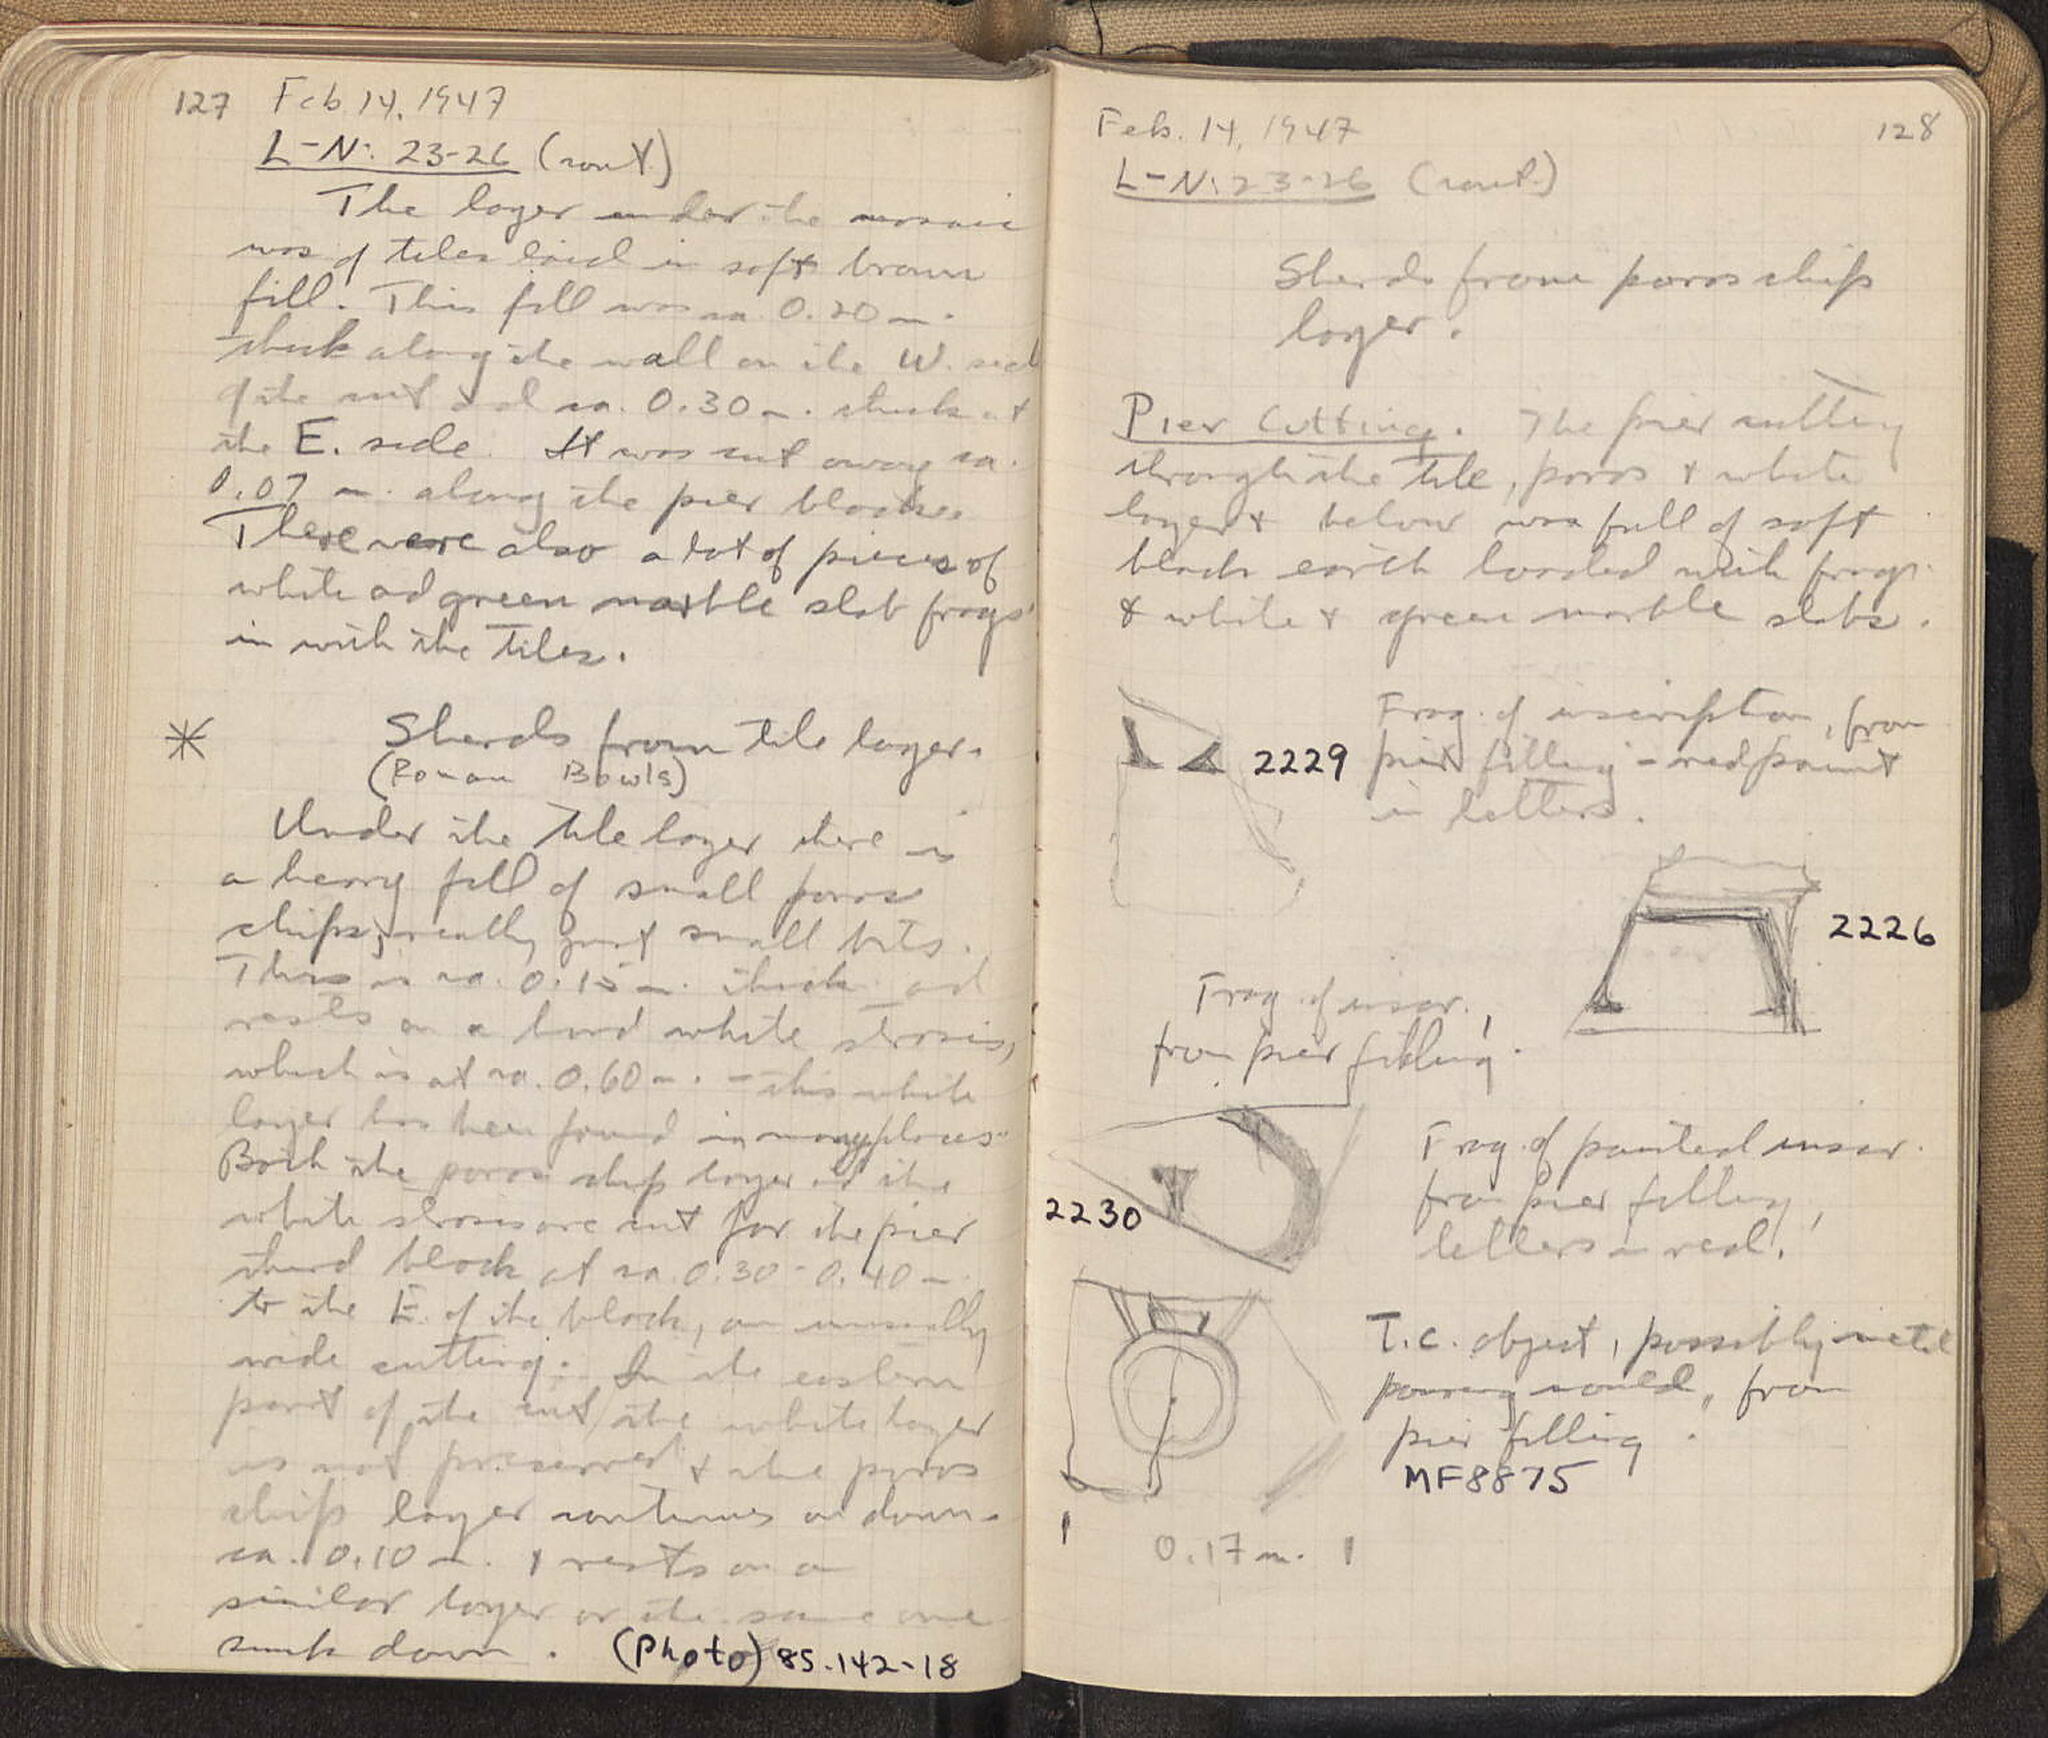 127 Feb 14, 1947
L-N: 23-26 (cont.)
The layer under the mosaic
was of tiles laid in soft brown
fill. This fill was ca. 0.20 m.
thick along the wall on the W. side
of the cut and ca. 0.30 m. thick at
the E. side. It was cut away ca.
0.07 m. along the pier blocks.
There were also a lot of pieces of
white and green marble slab frags
in with the tiles.
* Sherds from tile layer.
(Roman Bowls)
Under the tile layer there is
a heavy fill of small poros
chips, really just small bits.
This is ca. 0.15 m. thick and
rests on a hard white strosis,
which is at ca. 0.60 m. - this white
layer has been found in many places.
Both the poros chip layer and the
white strosis are cut for the pier
third block at ca. 0.30-0.40 m.
to the E. of the block, an unusually
wide cutting. In the eastern
part of the cut, the white layer
is not preserved & the poros
chip layer continues on down
ca. 0.10 m. & rests on a
similar layer or the same one
sunk down. (Photo) 85-142-18
Feb. 14, 1947 128
L-N: 23-26 (cont.)
Sherds from poros chip
layer.
Pier Cutting. The pier cutting
through the tile, poros & white
layer & below was full of soft
black earth loaded with frags.
& white & green marble slabs.
Frag. of inscription, from
2229 pier filling - red paint
in letters.
2226
Frag. of inscr.,
from pier filling.
Frag. of painted inscr.
from pier filling,
2230
letters in red.
T.C. object, possibly metal
pouring mould, from
pier filling.
MF8875
0.17 m.